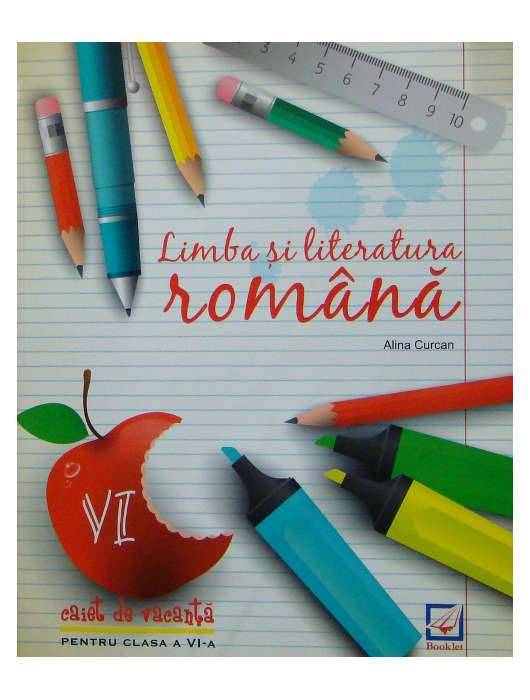 3 4 5 6 7 8 9 10
Limba și literatura
română
Alina Curcan
VI
caiet de vacanță
PENTRU CLASA A VI-A
Booklet